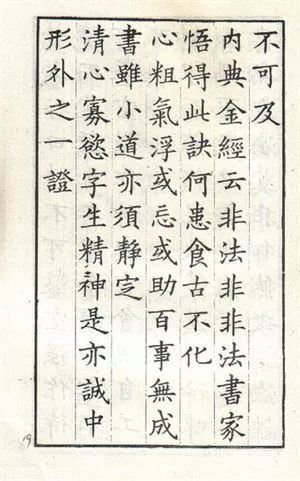 不可及
内典金經云非法非非法書家
悟得此訣何患食古不化
心粗氣浮或忘或助百事無成
書雖小道亦須静定
清心寡慾字生精神是亦誠中
形外之一證
19